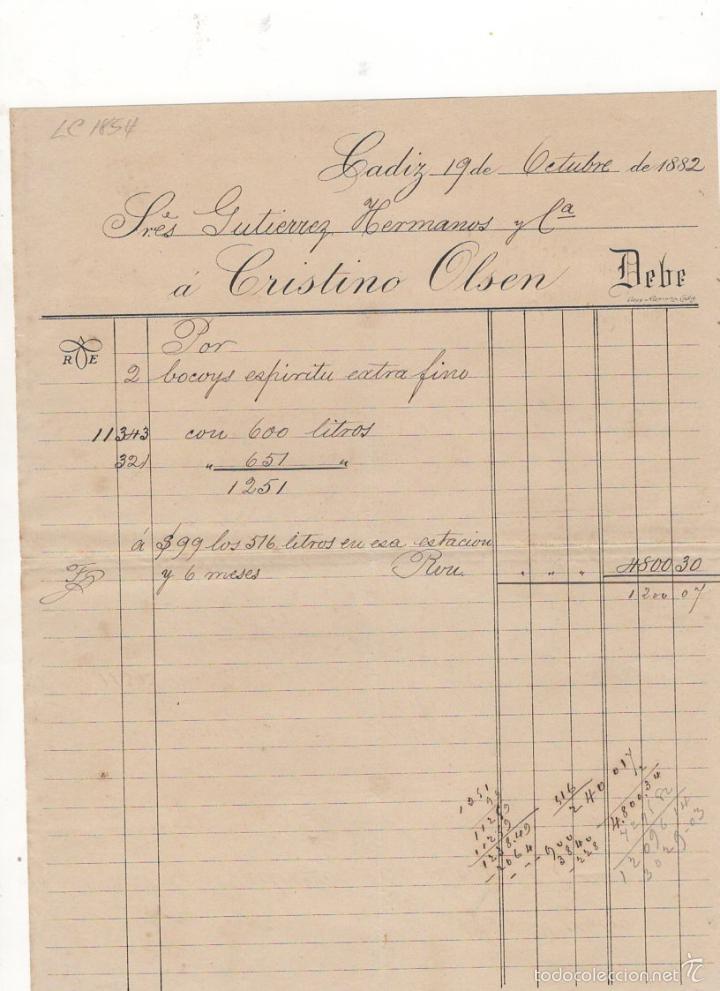 LC 1854
Cadiz 19 de Octubre de 1882
Sres Gutierrez Hermanos y Cª
á Cristino Olsen Debe
Por
R E
2 bocoys espiritu extra fino
11343 con 600 litros
321 " 651 "
1251
á $99 los 516 litros en esa estacion
y 6 meses Rvn. " " " 4800 30
1200 07
1251
99
11259
11259
516
240
4.800.30
todocoleccion.net